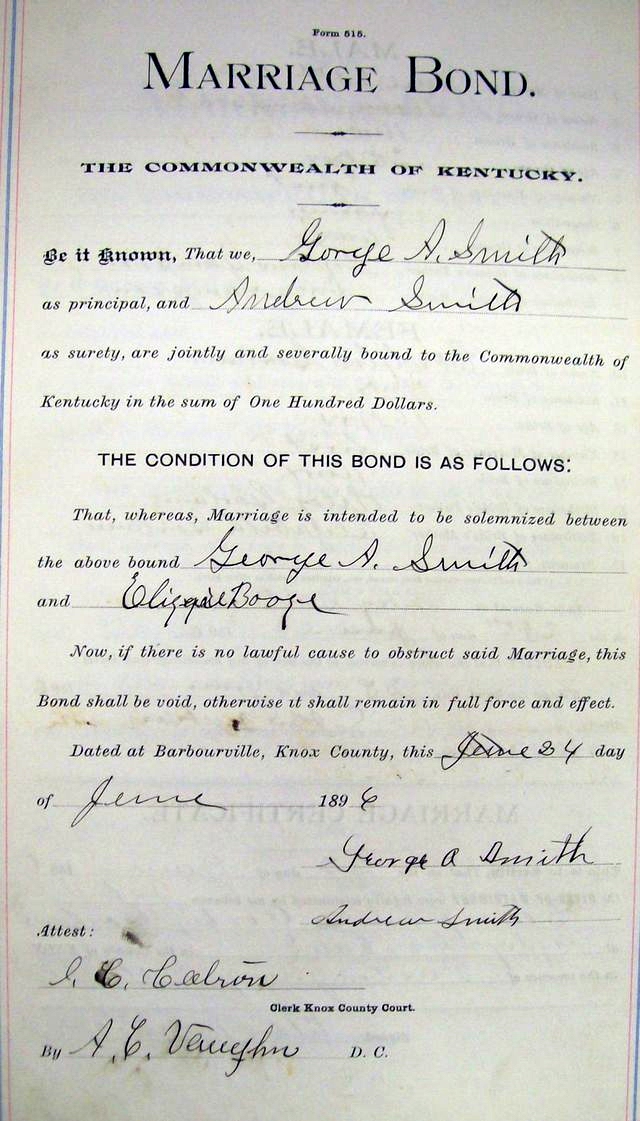 Form 515.
MARRIAGE BOND.
THE COMMONWEALTH OF KENTUCKY.
Be it Known, That we, Gorge A. Smith
as principal, and Andrew Smith
as surety, are jointly and severally bound to the Commonwealth of
Kentucky in the sum of One Hundred Dollars.
THE CONDITION OF THIS BOND IS AS FOLLOWS:
That, whereas, Marriage is intended to be solemnized between
the above bound George A. Smith
and
Now, if there is no lawful cause to obstruct said Marriage, this
Bond shall be void, otherwise it shall remain in full force and effect.
Dated at Barbourville, Knox County, this June 24 day
of June 1896
George A Smith
Andrew Smith
Attest:
Clerk Knox County Court.
By A. C. Vaughn D. C.